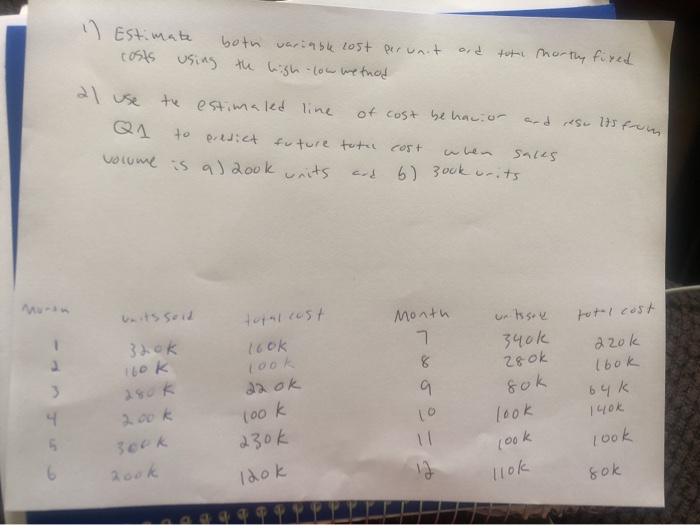 1) Estimate both variable cost per unit and total monthly fixed
costs using the high-low method
2) use the estimated line of cost behavior and results from
Q1 to predict future total cost when sales
volume is a) 200k units and b) 300k units
Month units sold total cost Month units sold total cost
1 320k 160k 7 340k 220k
2 160k 100k 8 280k 160k
3 280k 220k 9 80k 64k
4 200k 100k 10 100k 140k
5 300k 230k 11 100k 100k
6 200k 120k 12 110k 80k